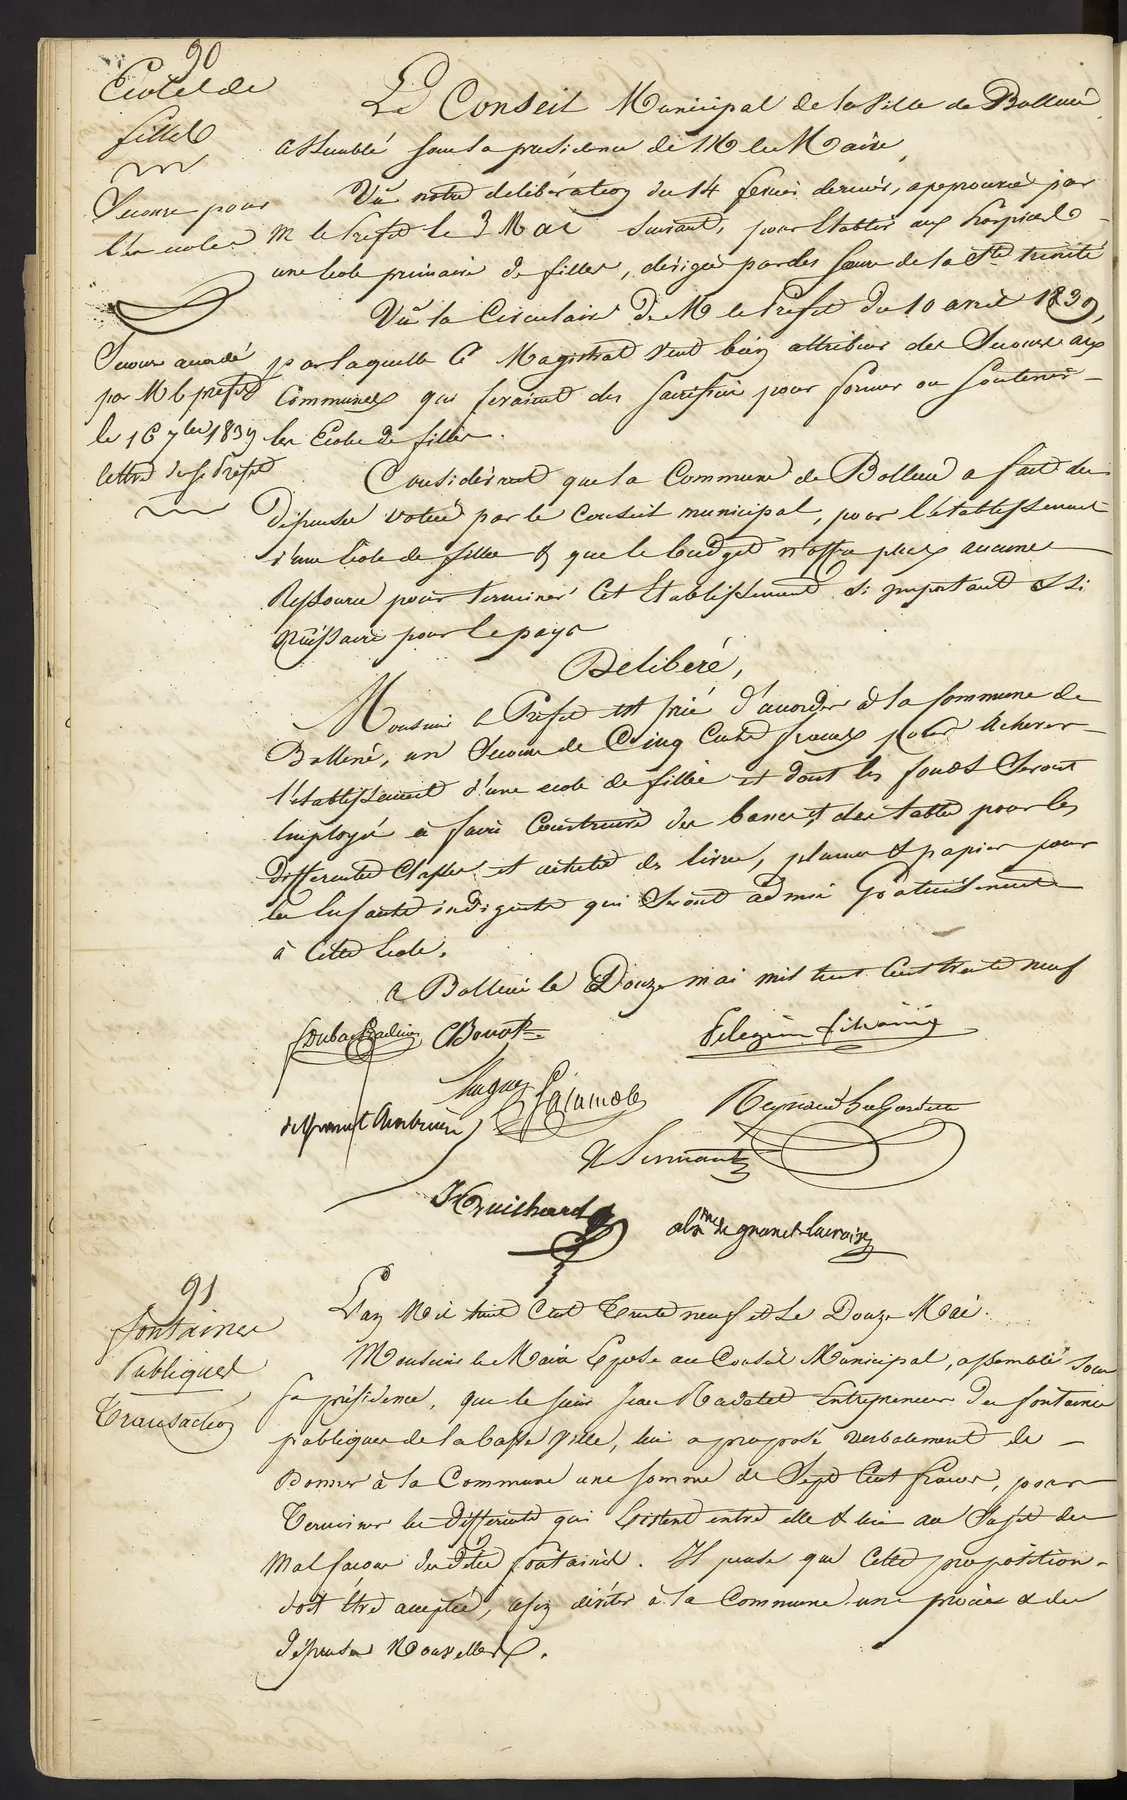 90
Ecole de
filles
Secours pour
les écoles
Secours accordé
par M le préfet
le 16 7bre 1839
lettre de Sr Préfet
Le Conseil Municipal de la Ville de Bollène
assemblé sous la présidence de M le Maire,
Vû notre délibération du 14 fevrier dernier, approuvée par
M le Préfet le 3 Mai suivant, pour Etablir aux hospices
une Ecole primaire de filles, dirigée par des sœurs de la Ste trinité
Vû la Circulaire De M le Préfet du 10 avril 1839,
par laquelle Ce Magistrat veut bien attribuer des Secours aux
Communes qui feraient des sacrifices pour former ou soutenir
les Ecoles de filles.
Considérant que la Commune de Bollène a fait des
dépenses votées par le Conseil municipal, pour l'établissement
d'une Ecole de filles & que le budget n'offre plus aucune
Ressource pour terminer Cet Etablissement si important & si
nécessaire pour le pays
Delibéré,
Monsieur le Préfet est prié d'accorder à la Commune de
Bollène, un Secours de Cinq Cents francs pour Achever
l'établissement d'une ecole de filles et dont les fonds seront
Employés à faire Construire des bancs & des tables pour les
differentes Classes et achetes des livres, plumes & papier pour
les Enfants indigents qui seront admis Gratuitement
à Cette Ecole.
A Bollène le Douze mai mil huit Cent trente neuf
Benoit
Pelegrin
Hugues
Reynaud La Gardette
Sermant
Guichard
de granet lacroix
91
fontaines
Publiques
Transaction
L'an Mil huit Cent Trente neuf et le Douze Mai.
Monsieur le Maire Expose au Conseil Municipal, assemblé sous
sa présidence, que le sieur Jean Nadalet Entrepreneur des fontaines
publiques de la basse Ville, lui a proposé verbalement de
Donner à la Commune une somme de Sept Cent francs, pour
Terminer les differents qui Existent entre elle & lui au Sujet des
Mal façons des dites fontaines. Il pense que Cette proposition
doit être acceptée, afin d'éviter à la Commune un procès & des
dépenses Nouvelles.